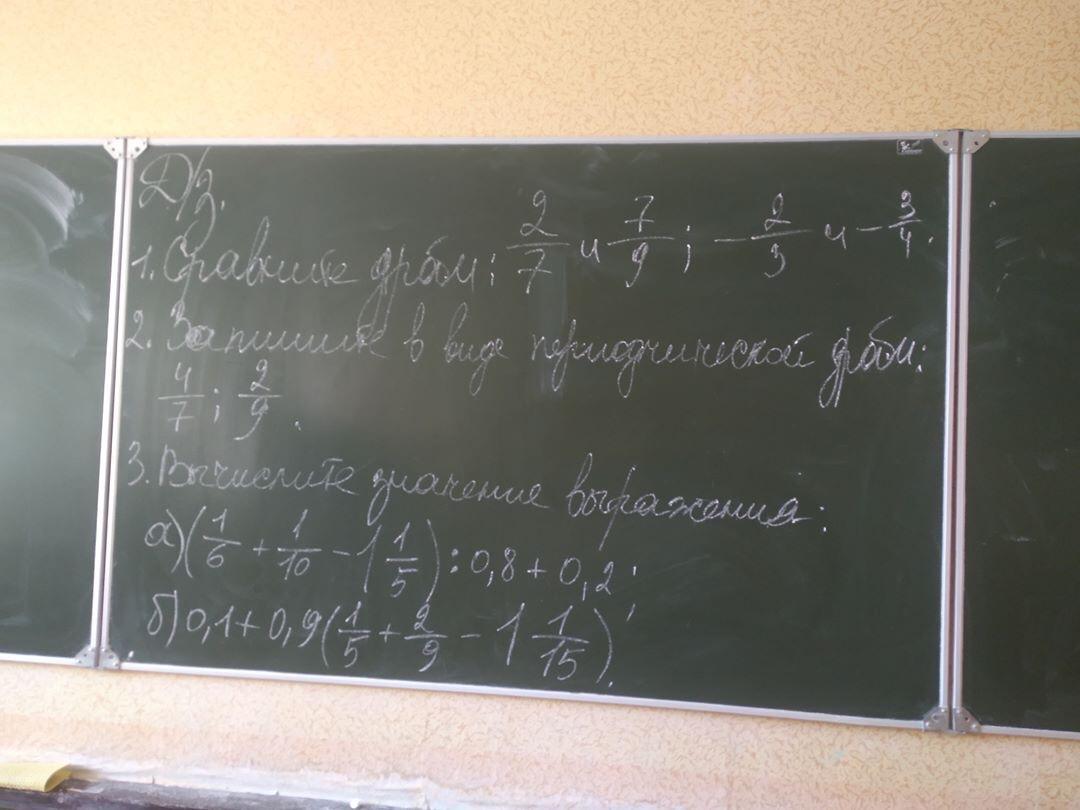 Д/з.
1. Сравните дроби: 2/7 и 7/9; -2/3 и -3/4.
2. Запишите в виде периодической дроби:
4/7; 2/9.
3. Вычислите значение выражения:
а) (1/6 + 1/10 - 1 1/5) : 0,8 + 0,2;
б) 0,1 + 0,9 (1/5 + 2/9 - 1 1/15).